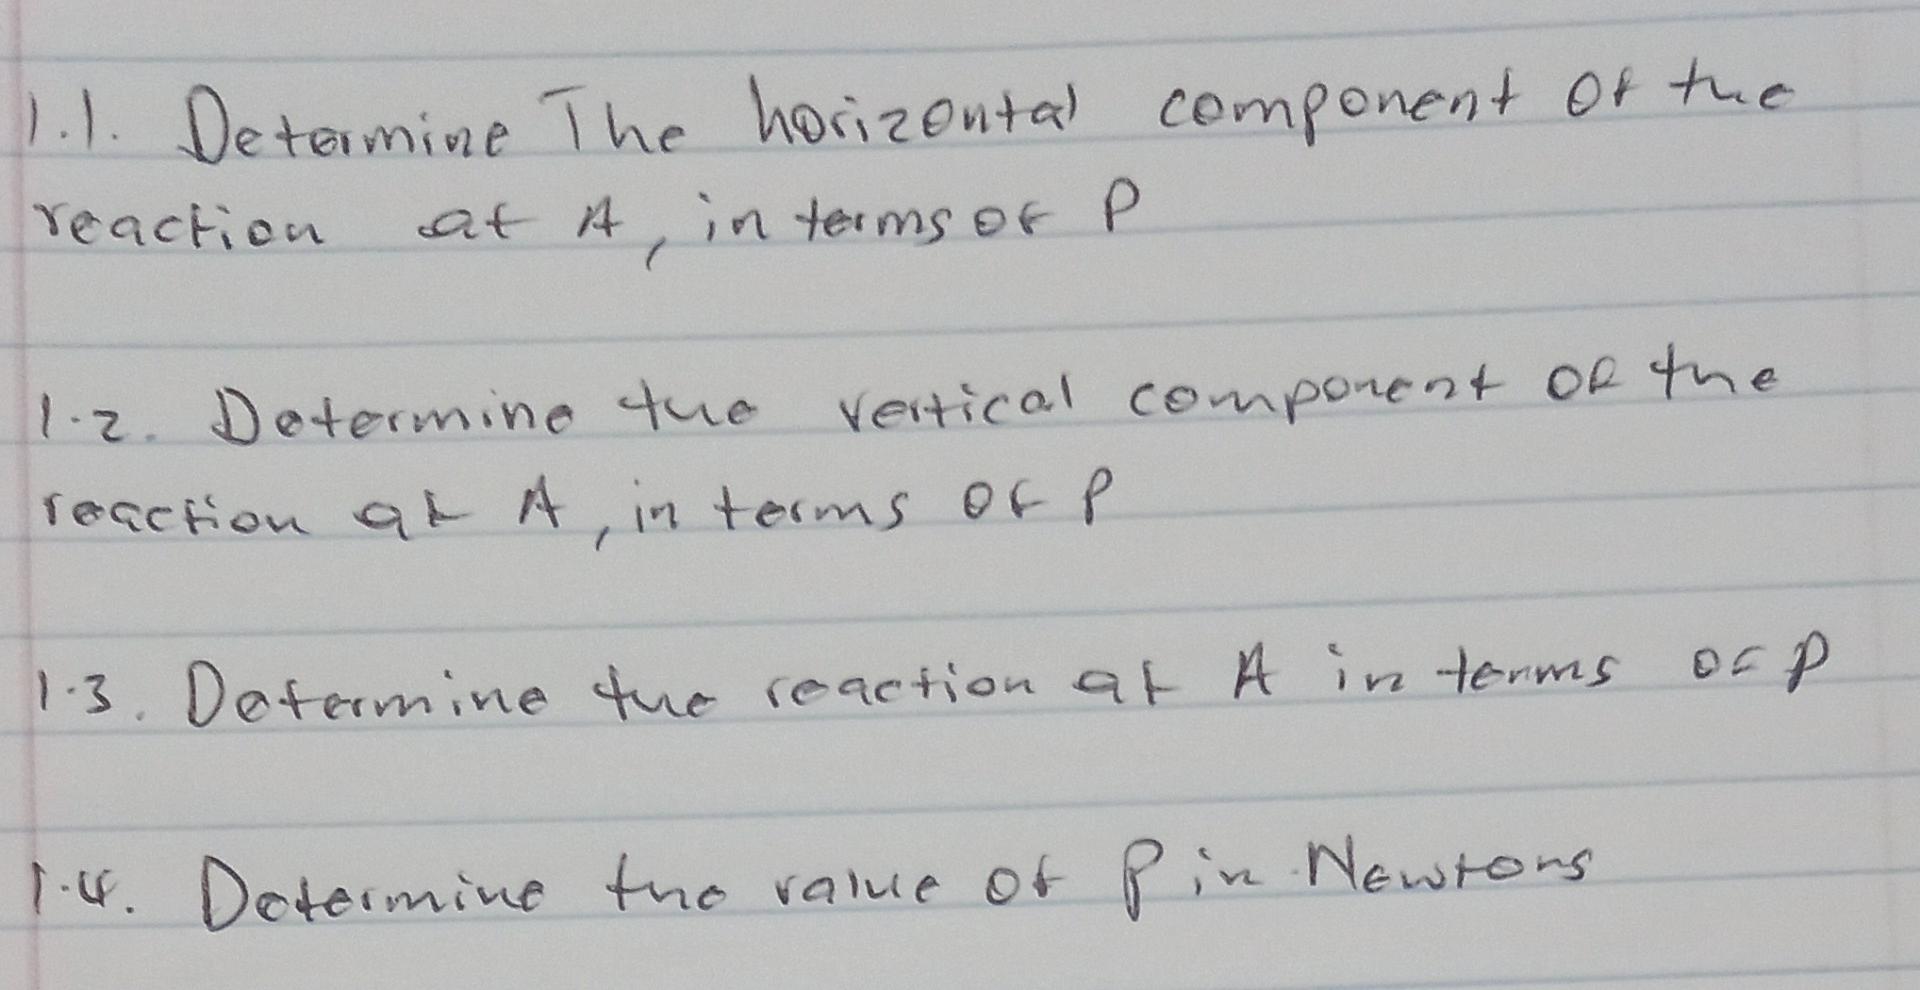 1.1. Determine The horizontal component of the
reaction at A, in terms of P
1.2. Determine the vertical component of the
reaction at A, in terms of P
1.3. Determine the reaction at A in terms of P
1.4. Determine the value of P in Newtons